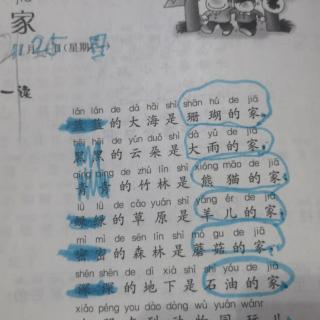 家
月25日(星期一)
一读
lán lán de dà hǎi shì shān hú de jiā
蓝蓝的大海是珊瑚的家，
hēi hēi de yún duǒ shì dà yǔ de jiā
黑黑的云朵是大雨的家，
qīng qīng de zhú lín shì xióng māo de jiā
青青的竹林是熊猫的家，
lǜ lǜ de cǎo yuán shì yáng ér de jiā
绿绿的草原是羊儿的家，
mì mì de sēn lín shì mó gu de jiā
密密的森林是蘑菇的家，
shēn shēn de dì xià shì shí yóu de jiā
深深的地下是石油的家，
xiǎo péng you dào dòng wù yuán wánr